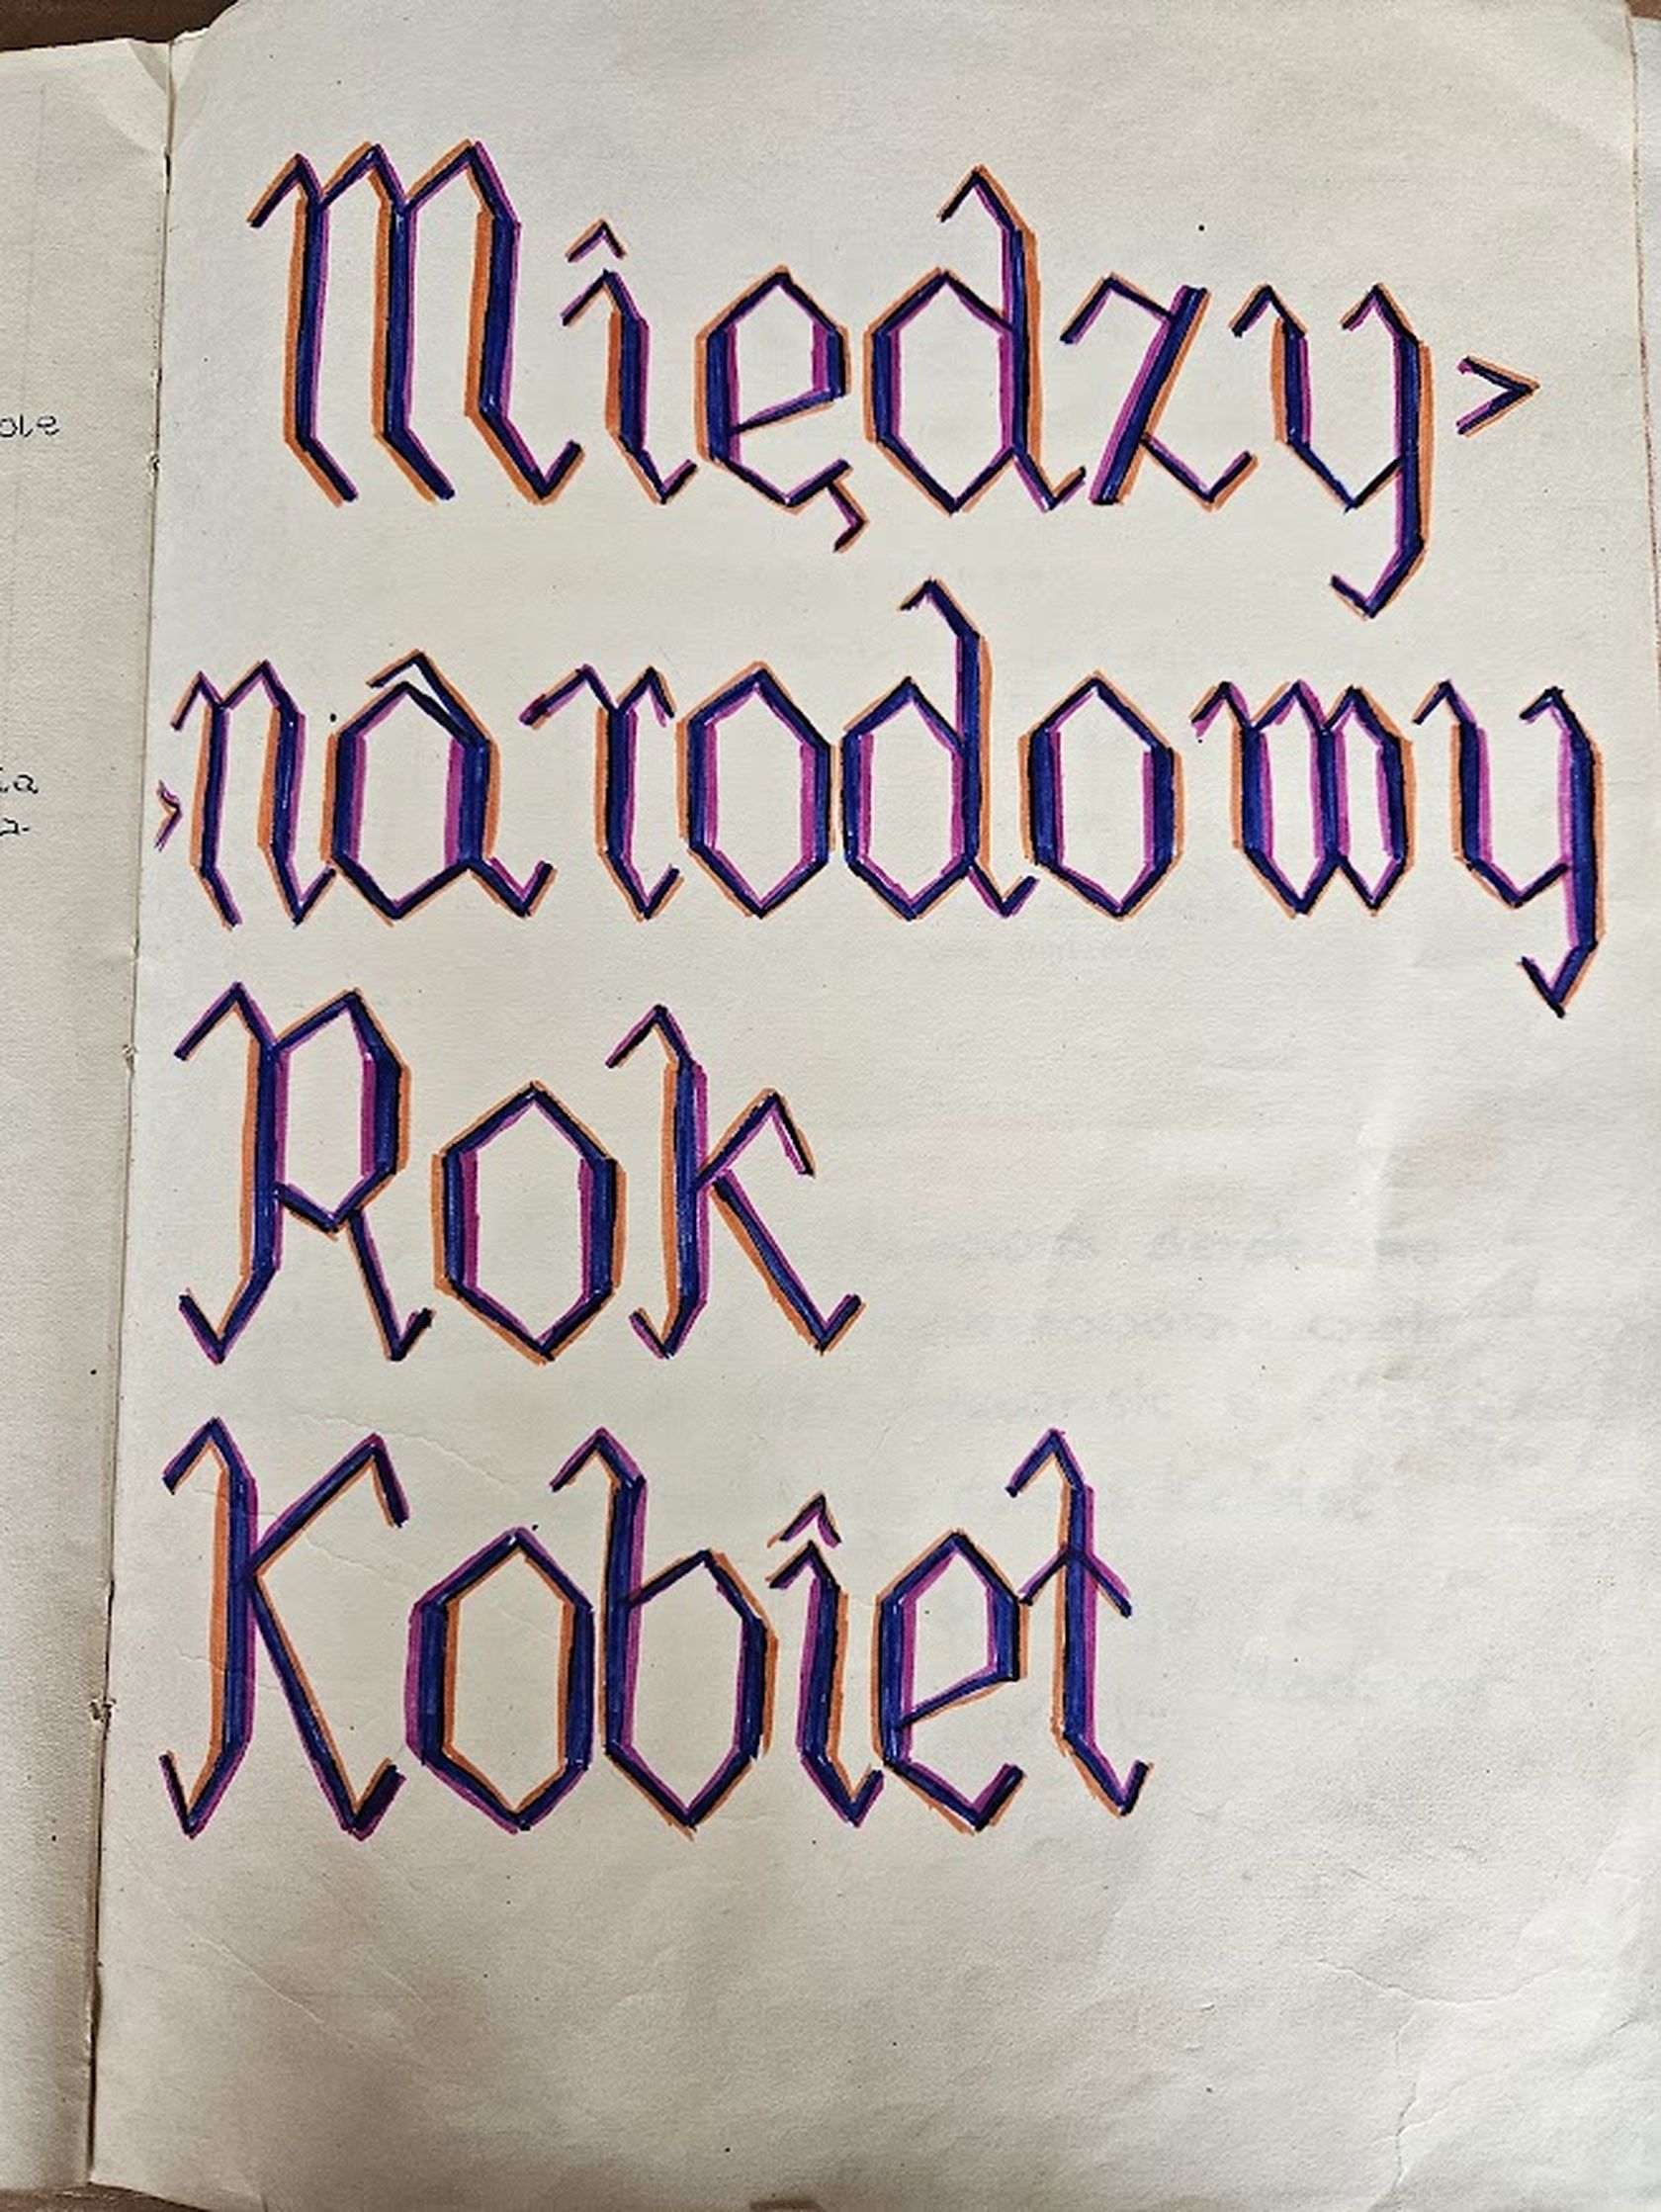 Między>
>narodowy
Rok
Kobiet